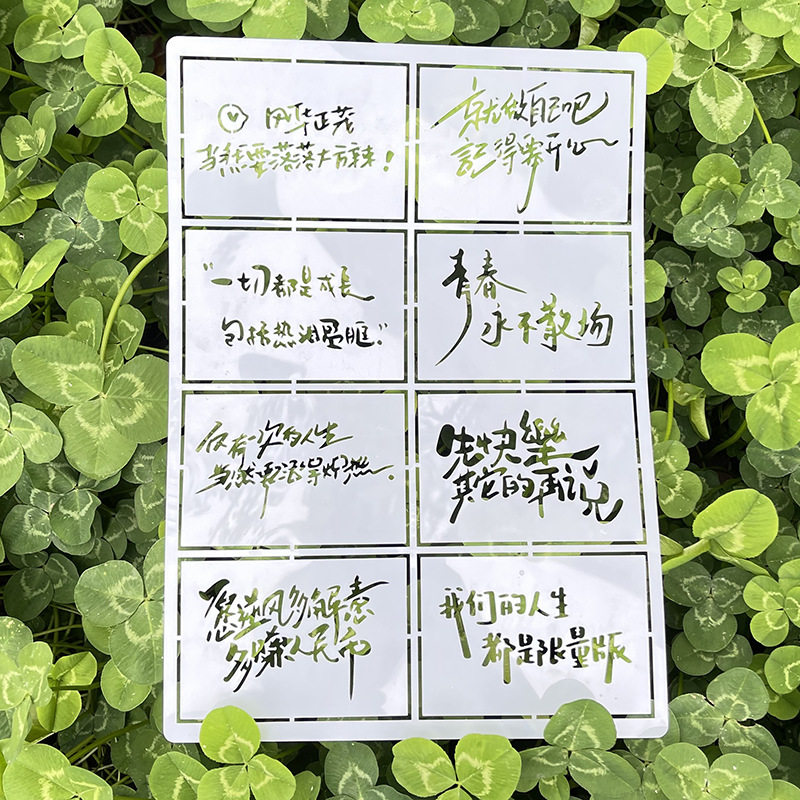 风华正茂
当然要落落大方辣！
就做自己吧
記得要开心
“一切都是成長
包括热泪盈眶。”
青春
永不散场
仅有一次的人生
当然要活得炽热.
先快樂
其它的再说
愿风多解意
多赚人民币
我们的人生
都是限量版